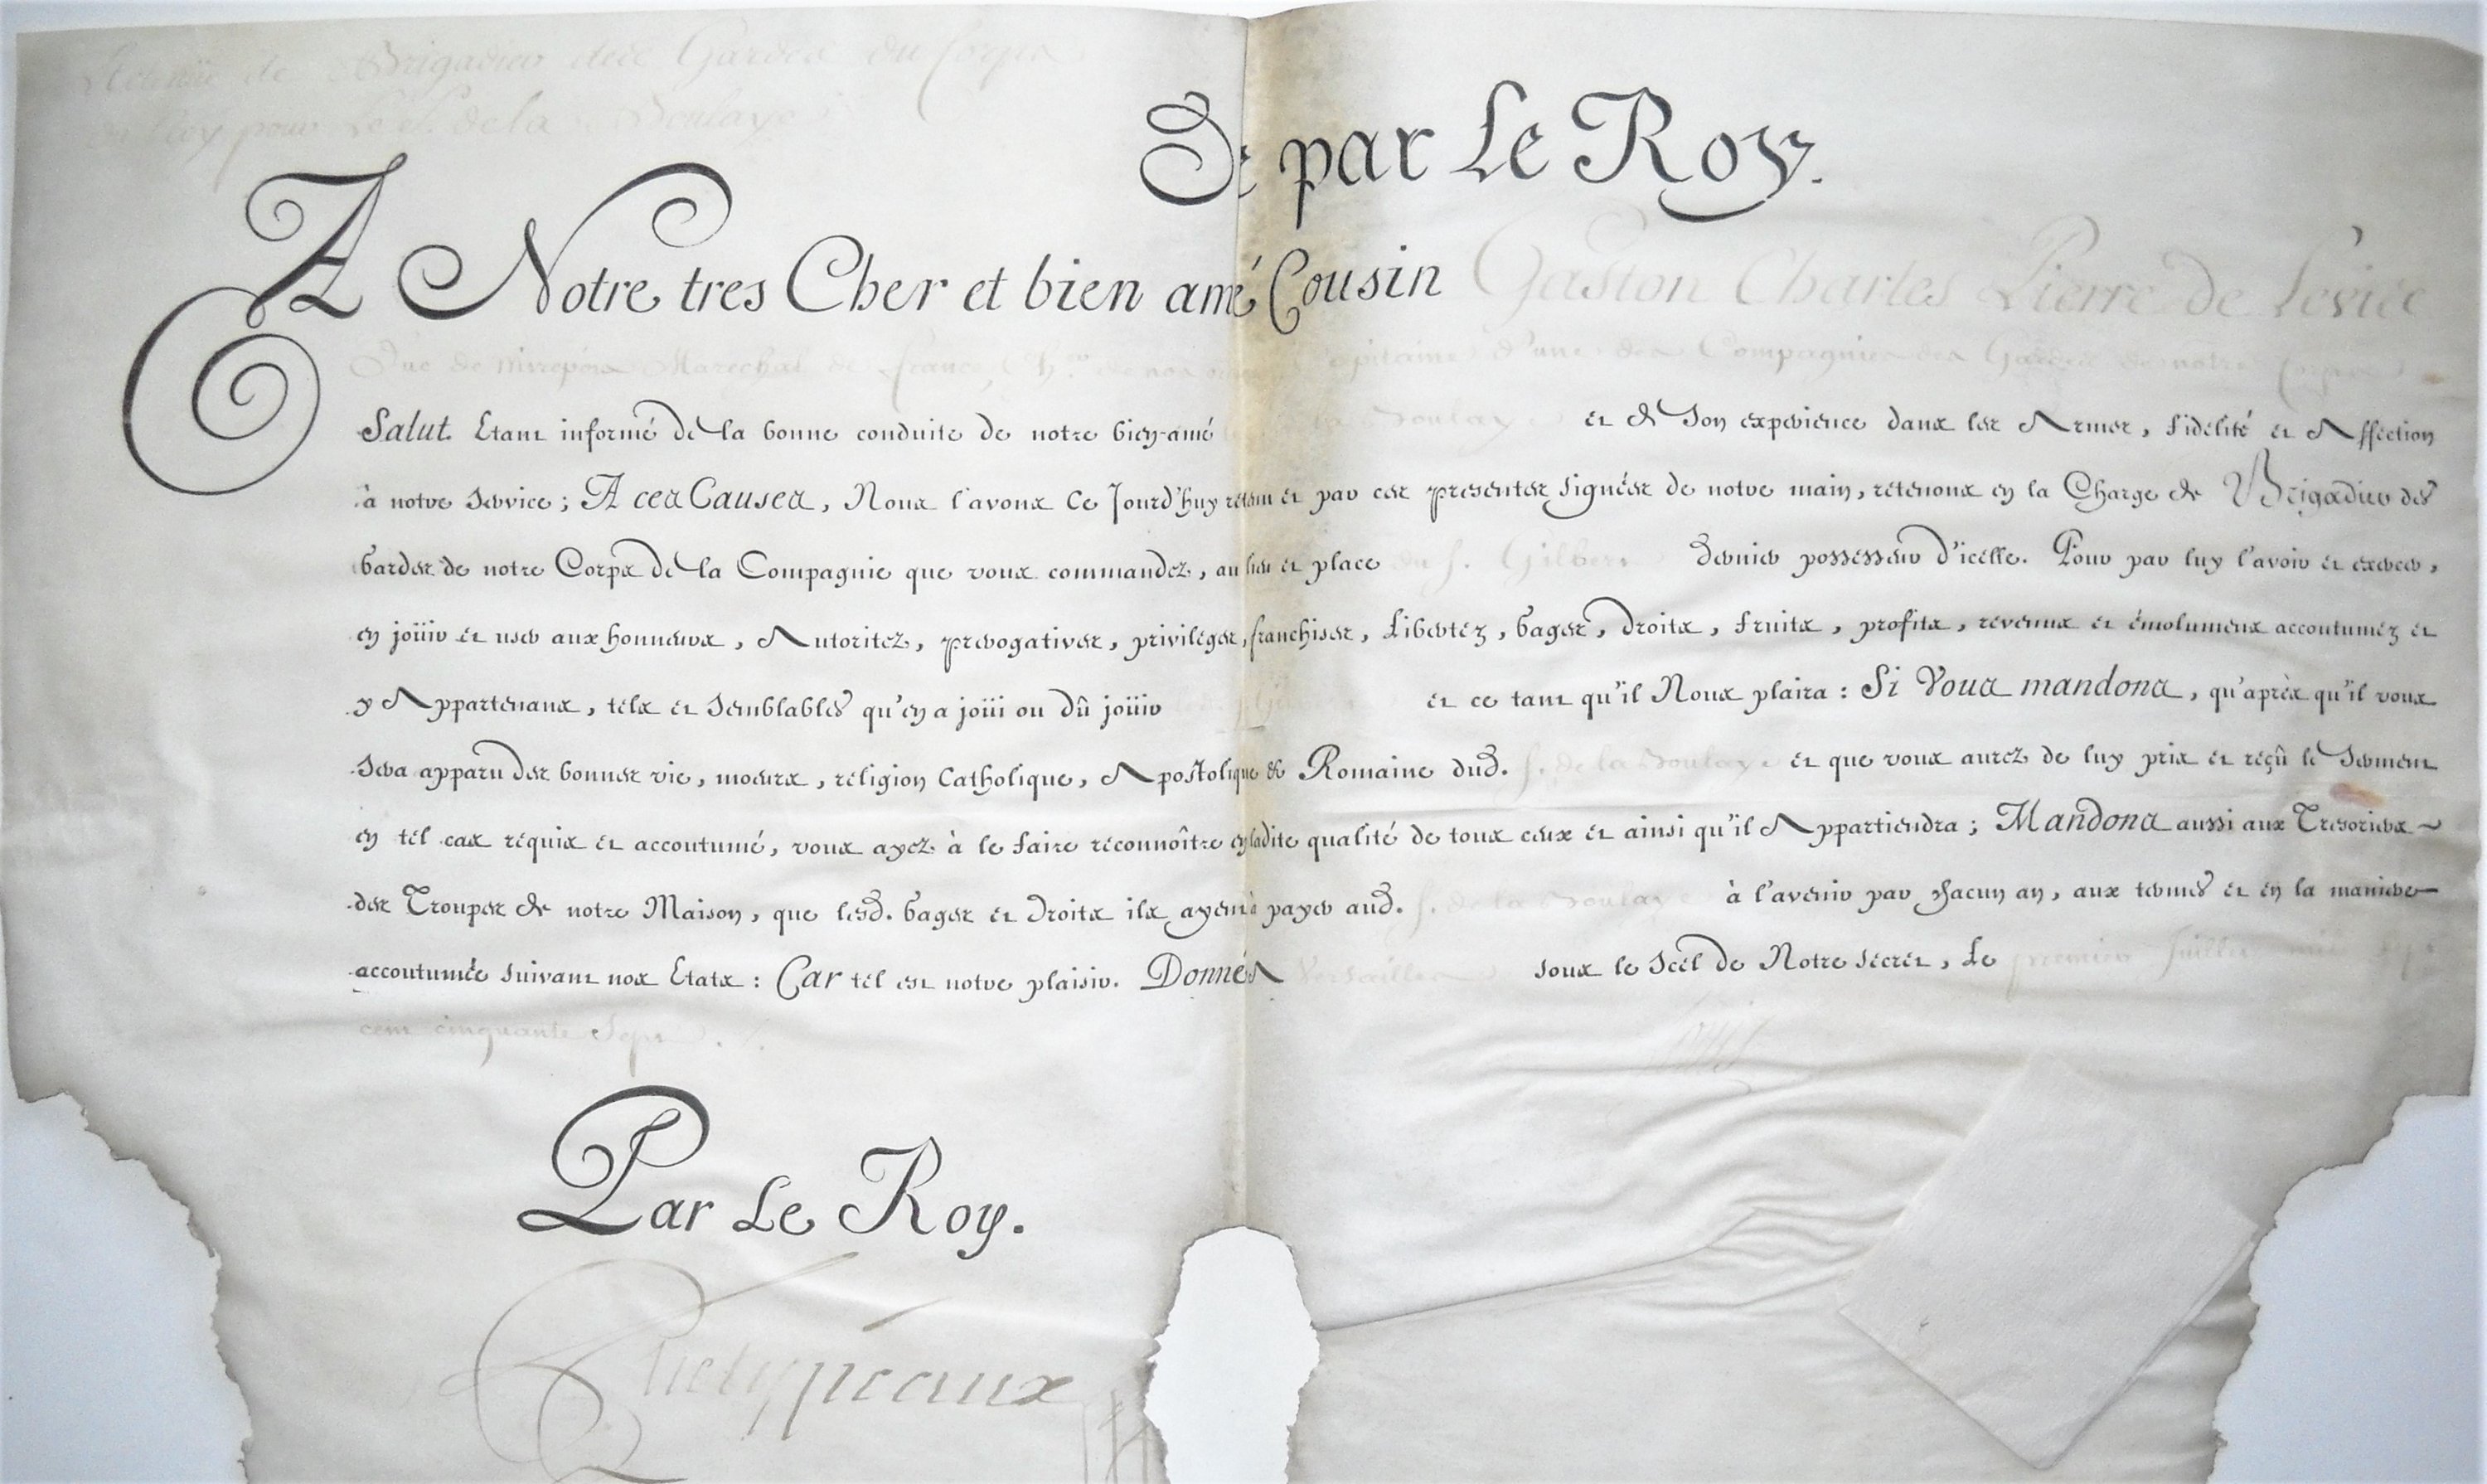 Retenüe de Brigadier des Gardes du Corps
du Roy pour le S. de la Boulaye
De par Le Roy.
A Notre tres Cher et bien amé Cousin Gaston Charles Pierre de Levies
Duc de Mirepoix Marechal de france, Ch.er de nos ordres Capitaine d'une des Compagnies des Gardes de notre Corps
Salut. Etant informé de la bonne conduite de notre bien-amé la Boulaye et de son experience dans les Armes, fidelité et Affection
à notre service; A ces Causes, Nous l'avons Ce Jourd'huy retenu et par ces presentes signées de notre main, retenons en la Charge de Brigadier des
Gardes de notre Corps de la Compagnie que vous commandez, au lieu et place du S. Gilbert dernier possesseur d'icelle. Pour par luy l'avoir et exercer,
en joüir et user aux honneurs, Autoritez, prerogatives, privileges, franchises, Libertéz, Gages, droits, fruits, profits, revenus et émolumens accoutuméz et
y Appartenans, tels et semblables qu'en a joüi ou dû joüir led. S. Gilbert et ce tant qu'il Nous plaira: Si Vous mandons, qu'après qu'il vous
sera apparu des bonnes vie, moeurs, religion Catholique, Apostolique & Romaine dud. S. de la Boulaye et que vous aurez de luy pris et réçû le Serment
en tel cas requis et accoutumé, vous ayez à le faire réconnoître en ladite qualité de tous ceux et ainsi qu'il Appartiendra; Mandons aussi aux Tresoriers
des Troupes de notre Maison, que lesd. Gages et Droits ils ayent à payer aud. S. de la Boulaye à l'avenir par chacun an, aux termes et en la maniere
accoutumée suivant nos Etats: Car tel est notre plaisir. Donné à Versailles sous le Scel de Notre secret, Le premier Juillet mil sept
cent cinquante Sept.
Louis
Par Le Roy.
Phelypeaux